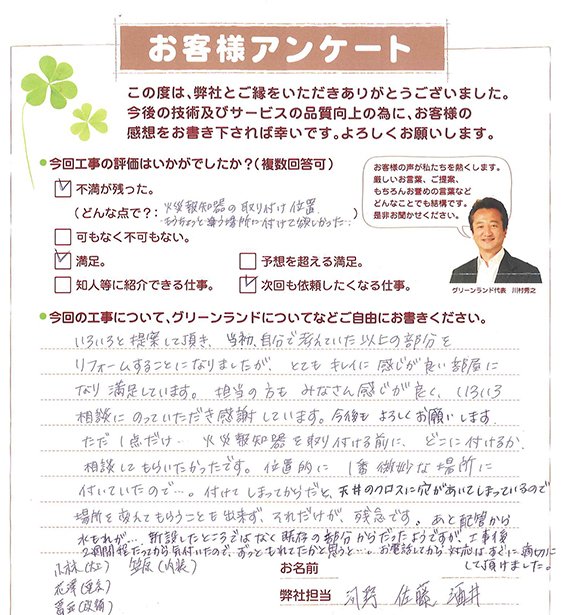 お客様アンケート
この度は、弊社とご縁をいただきありがとうございました。
今後の技術及びサービスの品質向上の為に、お客様の
感想をお書き下されば幸いです。よろしくお願いします。
今回工事の評価はいかがでしたか?(複数回答可)
不満が残った。
(どんな点で?: 火災報知器の取り付け位置
もうちょっと違う場所に付けて欲しかった。)
可もなく不可もない。
満足。
予想を超える満足。
知人等に紹介できる仕事。
次回も依頼したくなる仕事。
お客様の声が私たちを熱くします。
厳しいお言葉、ご提案、
もちろんお誉めの言葉など
どんなことでも結構です。
是非お聞かせください。
グリーンランド代表 川村秀之
今回の工事について、グリーンランドについてなどご自由にお書きください。
いろいろと提案して頂き、当初、自分で考えていた以上の部分を
リフォームすることになりましたが、とてもキレイに感じが良い部屋に
なり満足しています。担当の方もみなさん感じが良く、いろいろ
相談にのっていただき感謝しています。今後もよろしくお願いします
ただ1点だけ… 火災報知器を取り付ける前に、どこに付けるか
相談してもらいたかったです。位置的に1番微妙な場所に
付いていたので…。付けてしまってからだと、天井のクロスに穴があいてしまっているので
場所を変えてもらうことも出来ず、それだけが、残念です。あと配管から
水もれが… 新設したところではなく既存の部分からだったようですが、工事後
2週間程たってから気付いたので、ずっともれてたかと思うと…。お電話してから対応はすぐに適切に
して頂けました。
小林(大工) 笠原(内装)
お名前
弊社担当 河野 佐藤、酒井